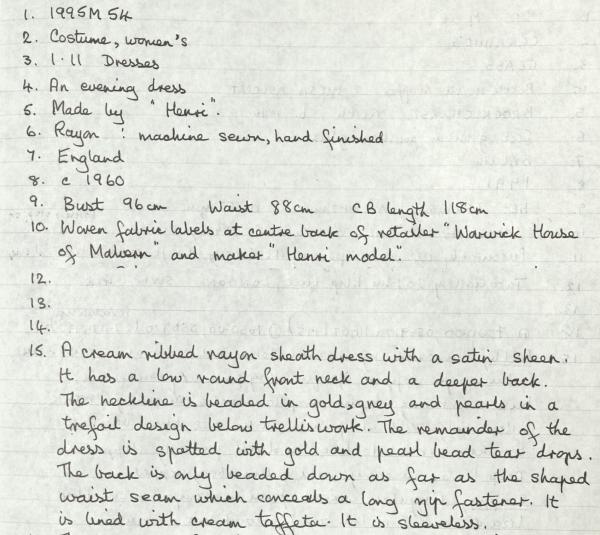 1. 1995M 54
2. Costume, women's
3. 1·11 Dresses
4. An evening dress
5. Made by "Henri".
6. Rayon: machine sewn, hand finished
7. England
8. c 1960
9. Bust 96cm Waist 88cm CB length 118cm
10. Woven fabric labels at centre back of retailer "Warwick House
of Malvern" and maker "Henri model".
12.
13.
14.
15. A cream ribbed rayon sheath dress with a satin sheen.
It has a low round front neck and a deeper back.
The neckline is beaded in gold, grey and pearls in a
trefoil design below trelliswork. The remainder of the
dress is spotted with gold and pearl bead tear drops.
The back is only beaded down as far as the shaped
waist seam which conceals a long zip fastener. It
is lined with cream taffeta. It is sleeveless.